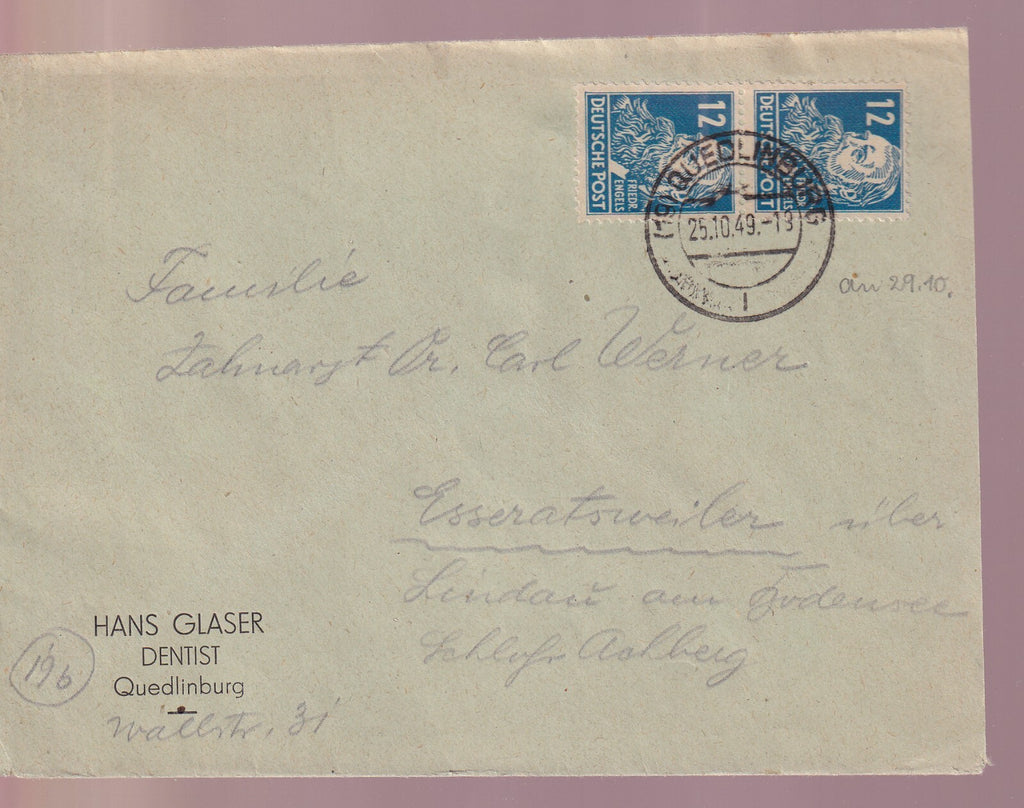 12
DEUTSCHE POST
FRIEDR.
ENGELS
12
DEUTSCHE POST
ENGELS
QUEDLINBURG
25.10.49.-19
an 29.10.
Familie
Zahnarzt Dr. Carl Werner
Esseratsweiler über
Lindau am Bodensee
Schloß Achberg
HANS GLASER
DENTIST
Quedlinburg
Wallstr. 31
19b